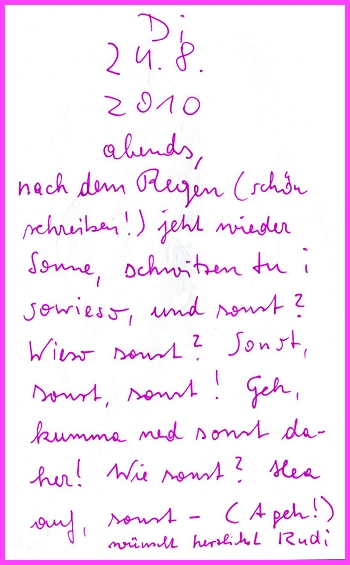 Di
24.8.
2010
abends,
nach dem Regen (schön
schreiben!) jeht wieder
Sonne, schwitzen tu i
sowieso, und sonst?
Wieso sonst? Sonst,
sonst, sonst! Geh,
kumma ned sonst da-
her! Wie sonst? Hea
auf, sonst – (A geh!)
wünscht herzlichst Rudi